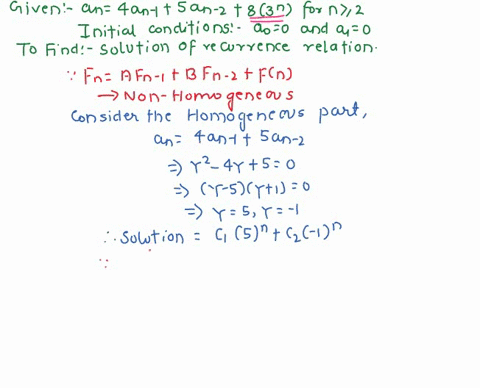 Given:- an = 4an-1 + 5an-2 + 8(3ⁿ) for n≥2
Initial conditions:- a₀=0 and a₁=0
To Find:- Solution of recurrence relation.
∵ Fn = AFn-1 + BFn-2 + F(n)
→ Non-Homogeneous
Consider the Homogeneous part,
an = 4an-1 + 5an-2
⇒ r² - 4r + 5 = 0
⇒ (r-5)(r+1) = 0
⇒ r = 5, r = -1
∴ Solution = C₁(5)ⁿ + C₂(-1)ⁿ
∵